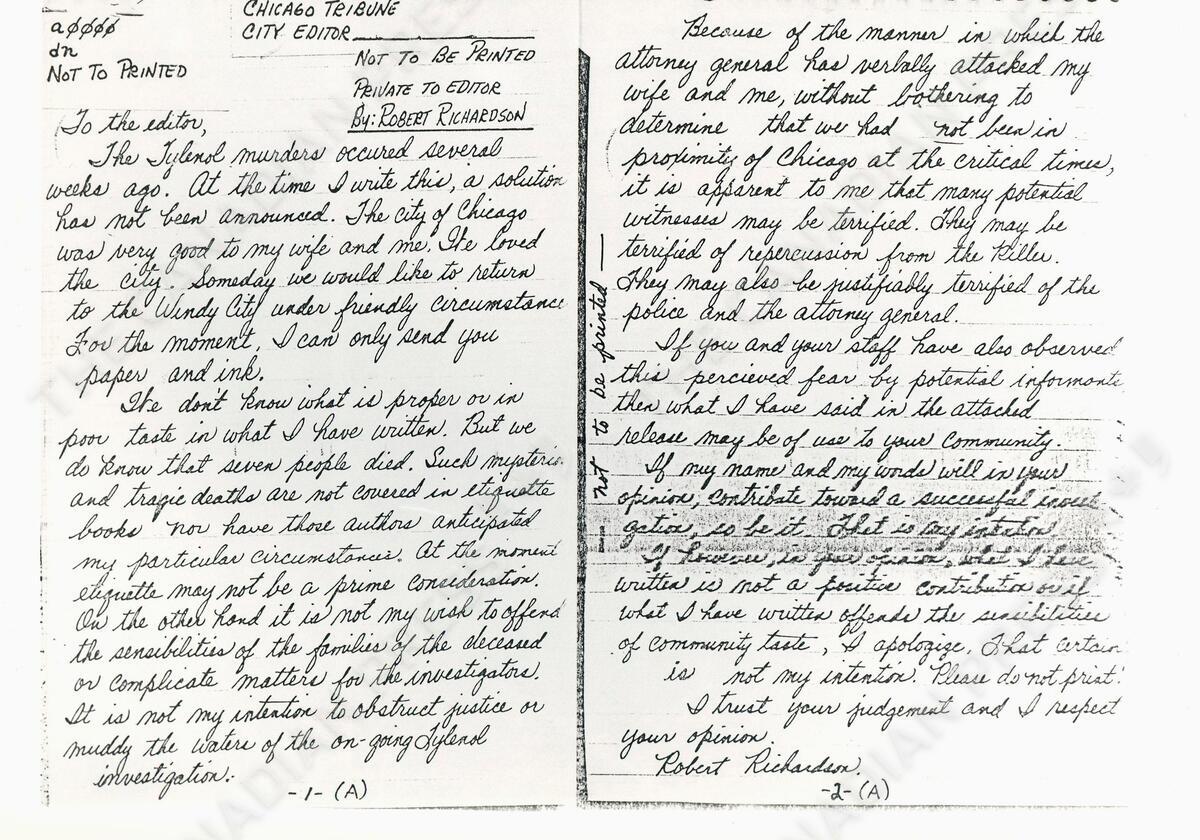 CHICAGO TRIBUNE
CITY EDITOR
a0000
dn
NOT TO PRINTED
NOT TO BE PRINTED
PRIVATE TO EDITOR
By: ROBERT RICHARDSON
To the editor,
The Tylenol murders occured several
weeks ago. At the time I write this, a solution
has not been announced. The city of Chicago
was very good to my wife and me. We loved
the city. Someday we would like to return
to the Windy City under friendly circumstance
For the moment, I can only send you
paper and ink.
We don't know what is proper or in
poor taste in what I have written. But we
do know that seven people died. Such mysterio
and tragic deaths are not covered in etiquette
books nor have those authors anticipated
my particular circumstances. At the moment
etiquette may not be a prime consideration.
On the other hand it is not my wish to offend
the sensibilities of the families of the deceased
or complicate matters for the investigators.
It is not my intention to obstruct justice or
muddy the waters of the on-going Tylenol
investigation.
-1- (A)
not to be printed
Because of the manner in which the
attorney general has verbally attacked my
wife and me, without bothering to
determine that we had not been in
proximity of Chicago at the critical times,
it is apparent to me that many potential
witnesses may be terrified. They may be
terrified of repercussion from the Killer.
They may also be justifiably terrified of the
police and the attorney general.
If you and your staff have also observed
this percieved fear by potential informants
then what I have said in the attached
release may be of use to your community.
If my name and my words will in your
opinion, contribute toward a successful invest
gation, so be it. That is my intention
If however, in your opinion, what I have
written is not a positive contribution or if
what I have written offends the sensibilities
of community taste, I apologize. That certain
is not my intention. Please do not print!
I trust your judgement and I respect
your opinion.
Robert Richardson.
-2- (A)